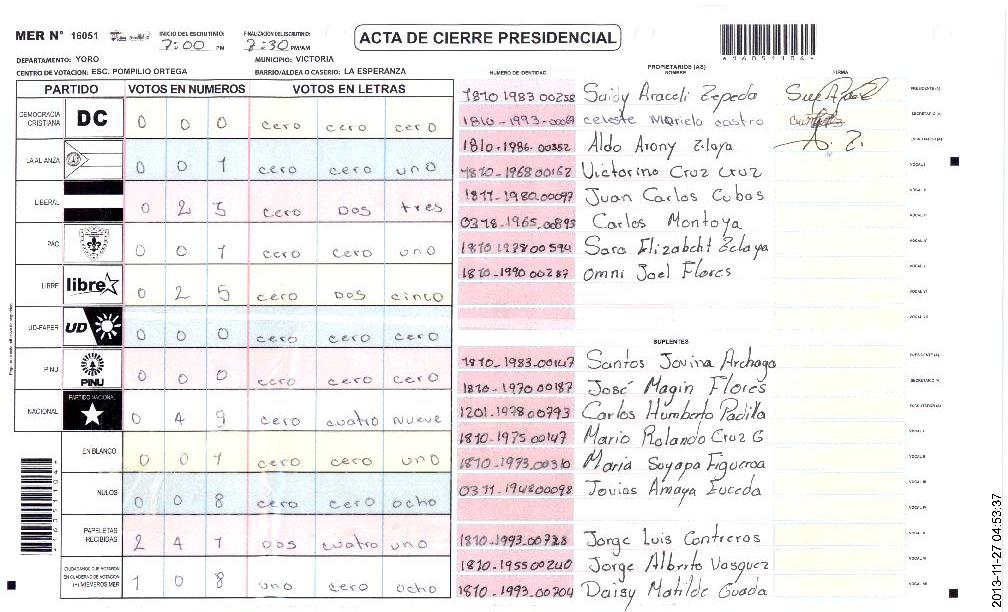 MER N° 16051
INICIO DEL ESCRUTINIO: 7:00 PM
FINALIZACIÓN DEL ESCRUTINIO: PM/AM
ACTA DE CIERRE PRESIDENCIAL
DEPARTAMENTO: YORO
MUNICIPIO: VICTORIA
CENTRO DE VOTACION: ESC. POMPILIO ORTEGA
BARRIO/ALDEA O CASERIO: LA ESPERANZA
PARTIDO VOTOS EN NUMEROS VOTOS EN LETRAS
DEMOCRACIA CRISTIANA DC 0 0 0 cero cero cero
LA ALIANZA 0 0 1 cero cero uno
LIBERAL 0 2 3 cero Dos tres
PAC 0 0 1 cero cero uno
LIBRE libre 0 2 5 cero Dos cinco
UD-FAPER UD 0 0 0 cero cero cero
PINU PINU 0 0 0 cero cero cero
NACIONAL PARTIDO NACIONAL 0 4 9 cero cuatro Nueve
EN BLANCO 0 0 1 cero cero uno
NULOS 0 0 8 cero cero ocho
PAPELETAS RECIBIDAS 2 4 1 Dos cuatro uno
CIUDADANOS QUE VOTARON EN CUADERNO DE VOTACION (+) MIEMBROS MER 1 0 8 uno cero ocho
NUMERO DE IDENTIDAD
PROPIETARIOS (AS)
NOMBRE
FIRMA
1810 1983 00258 Saidy Araceli Zepeda PRESIDENTE (A)
celeste Mariela castro SECRETARIO (A)
1810-1986-00352 Aldo Arony Zelaya A. Z.
1810-1968 00162 Victorino Cruz Cruz VOCAL I
1811-1980.00097 Juan Carlos Cubas VOCAL II
0318-1965.00893 Carlos Montoya
1810 1978 00594 Sara Elizabeht Zelaya
1810-1990 00287 Omni Joel Flores
SUPLENTES
1810-1983-00147 Santos Jovina Archaga PRESIDENTE (A)
1810-1970 00187 José Magin Flores SECRETARIO (A)
1201-1978 00793 Carlos Humberto Padilla
1810-1975 00147 Mario Rolando Cruz G
1810-1973.00310 Maria Suyapa Figueroa
0311-1948 00098 Amaya
1810-1993-00728 Jorge Luis Contreros
1810-1955 00240 Jorge Alberto Vasquez
1810-1993-00204 Daisy Matilde
2013-11-27 04:53:37